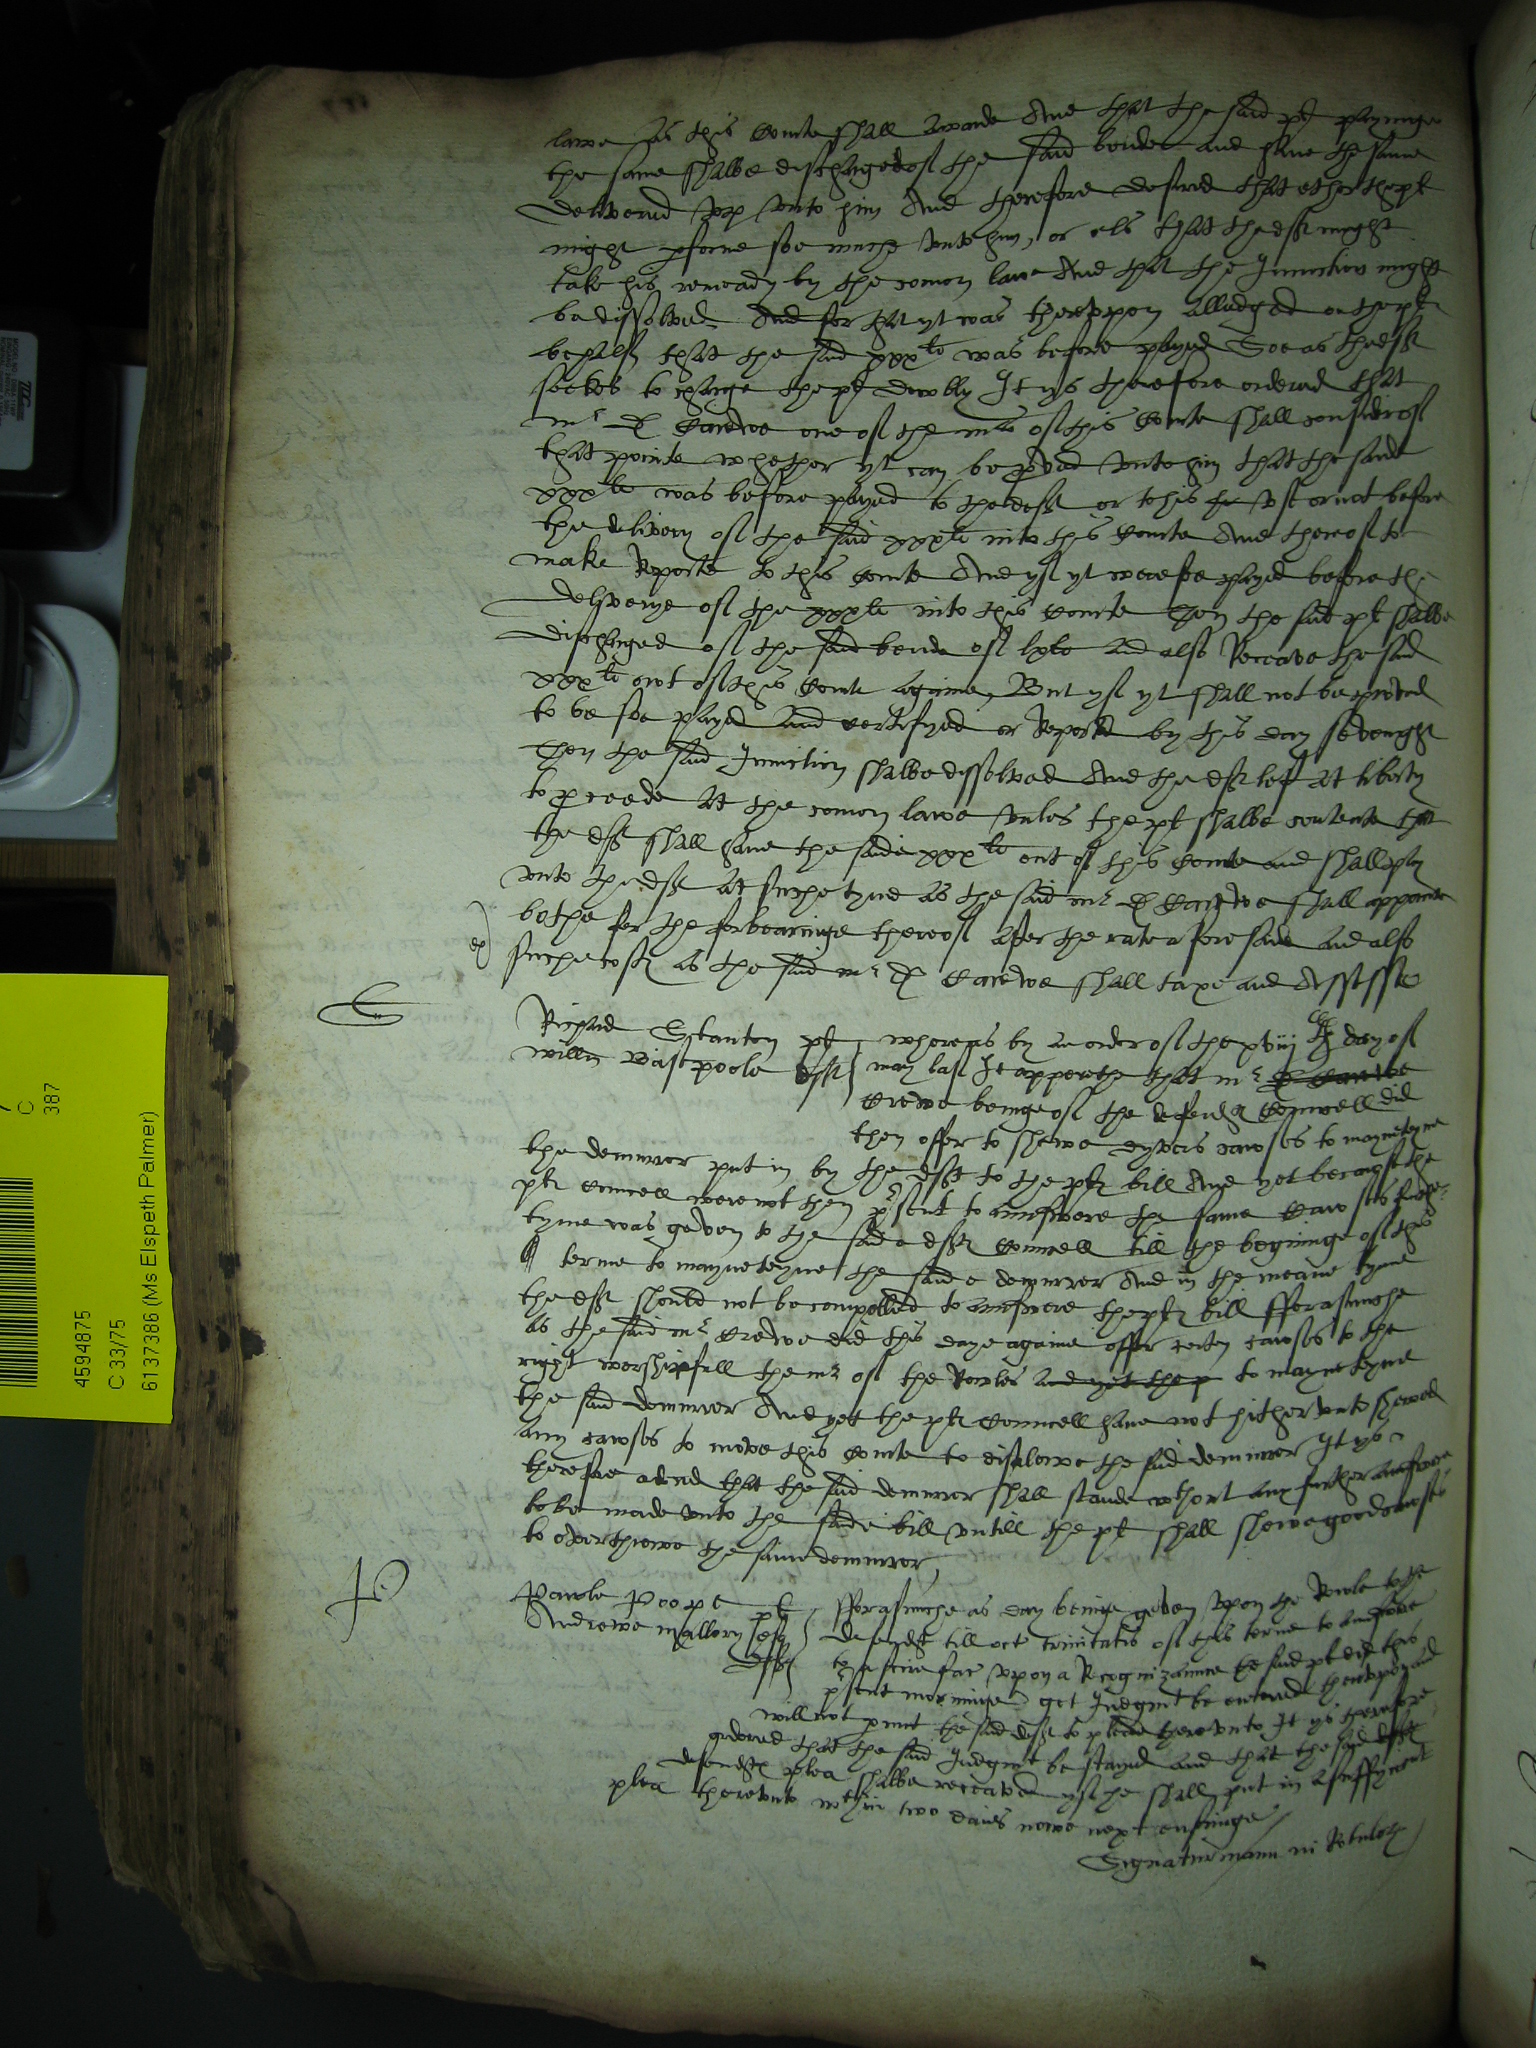 lawe as this Courte shall awarde And that the said pt payinge
the same shalbe discharged of the said bonde and have the same
delivered upp unto him And therefore desired that ether the pt
might pforme soe muche unto him, or els that the deft might
take his remedy by the comon lawe And that the Iniunction might
be dissolved And for that yt was thereuppon alledged on the pts
behalf that the said xxxli was before payed Soe as the deft
seekes to charge the pt dowbly It ys therefore ordered that
mr D Carewe one of the mrs of this Courte shall consider of
that pointe whether yt can be proved unto him that the saide
xxxli was before payed to the deft or to his use or not before
the delivery of the said xxxli into this Courte And thereof to
make Reporte to this Courte And yf yt were soe payed before the
delyverye of the xxxli into this Courte Then the said pt shalbe
discharged of the said bonde of lxli and also Receave the said
xxxli owt of this Courte againe, But yf yt shall not be proved
to be soe payed and certifyed or Reported by this day sevenight
Then the said Iniunction shalbe dissolved And the deft left at liberty
to proceede at the comon lawe unles the pt shalbe contente that
the deft shall have the saide xxxli out of this Courte and shall pay
unto the deft at suche tyme as the said mr D Carewe shall appointe
bothe for the forbearinge thereof after the rate aforesaide and also
suche costs as the said mr D Carewe shall taxe and Assesse
Richard Stanton pt whereas by an order of the xviij th day of
Willm Walpoole deft may last It appereth that mr D Carewe
Crewe beinge of the defendts Councell did
then offer to shewe dyvers cawses to mayneteyne
the demurrer put in by the deft to the pts bill And yet because the
pts councell were not then psent to answere the same Cawses further
tyme was geven to the saide defts Councell till the beginninge of this
terme to mayneteyne the saide demurrer And in the meane tyme
the deft should not be compelled to answere the pts bill fforasmuche
as the said mr Crewe did this daye againe offer certen cawses to the
right worshipfull the mr of the Rowles and yet the p to mayneteyne
the said demurrer And yet the pts Councell have not hitherunto shewed
any cawses to move this Courte to disalowe the said demurrer It ys
therefore ordred that the said demurrer shall stande wthout any further answere
to be made unto the saide bill untill the pt shall shewe good cawses
to overthrowe the same demurrer
Pawle Poope pt fforasmuche as day beinge geven upon the Rowle to the
Andrewe Mallory esq defendt till oct trinitatis of this terme to answere
deft to a scire fac upon a Recognizaunce the said pt did this
psent morninge get Iudgmt be entered thereuppon and
will not pmit the said deft to pleade thereunto It ys therefore
ordered that the said Iudgmt be stayed and that the said deft
defendts plea shalbe receaved yf he shall put in a suffycient
plea thereunto wthin two daies nowe next ensuinge
Signatur manu m Rotulor
4594875
C 33/75
6137386 (Ms Elspeth Palmer)
C
387